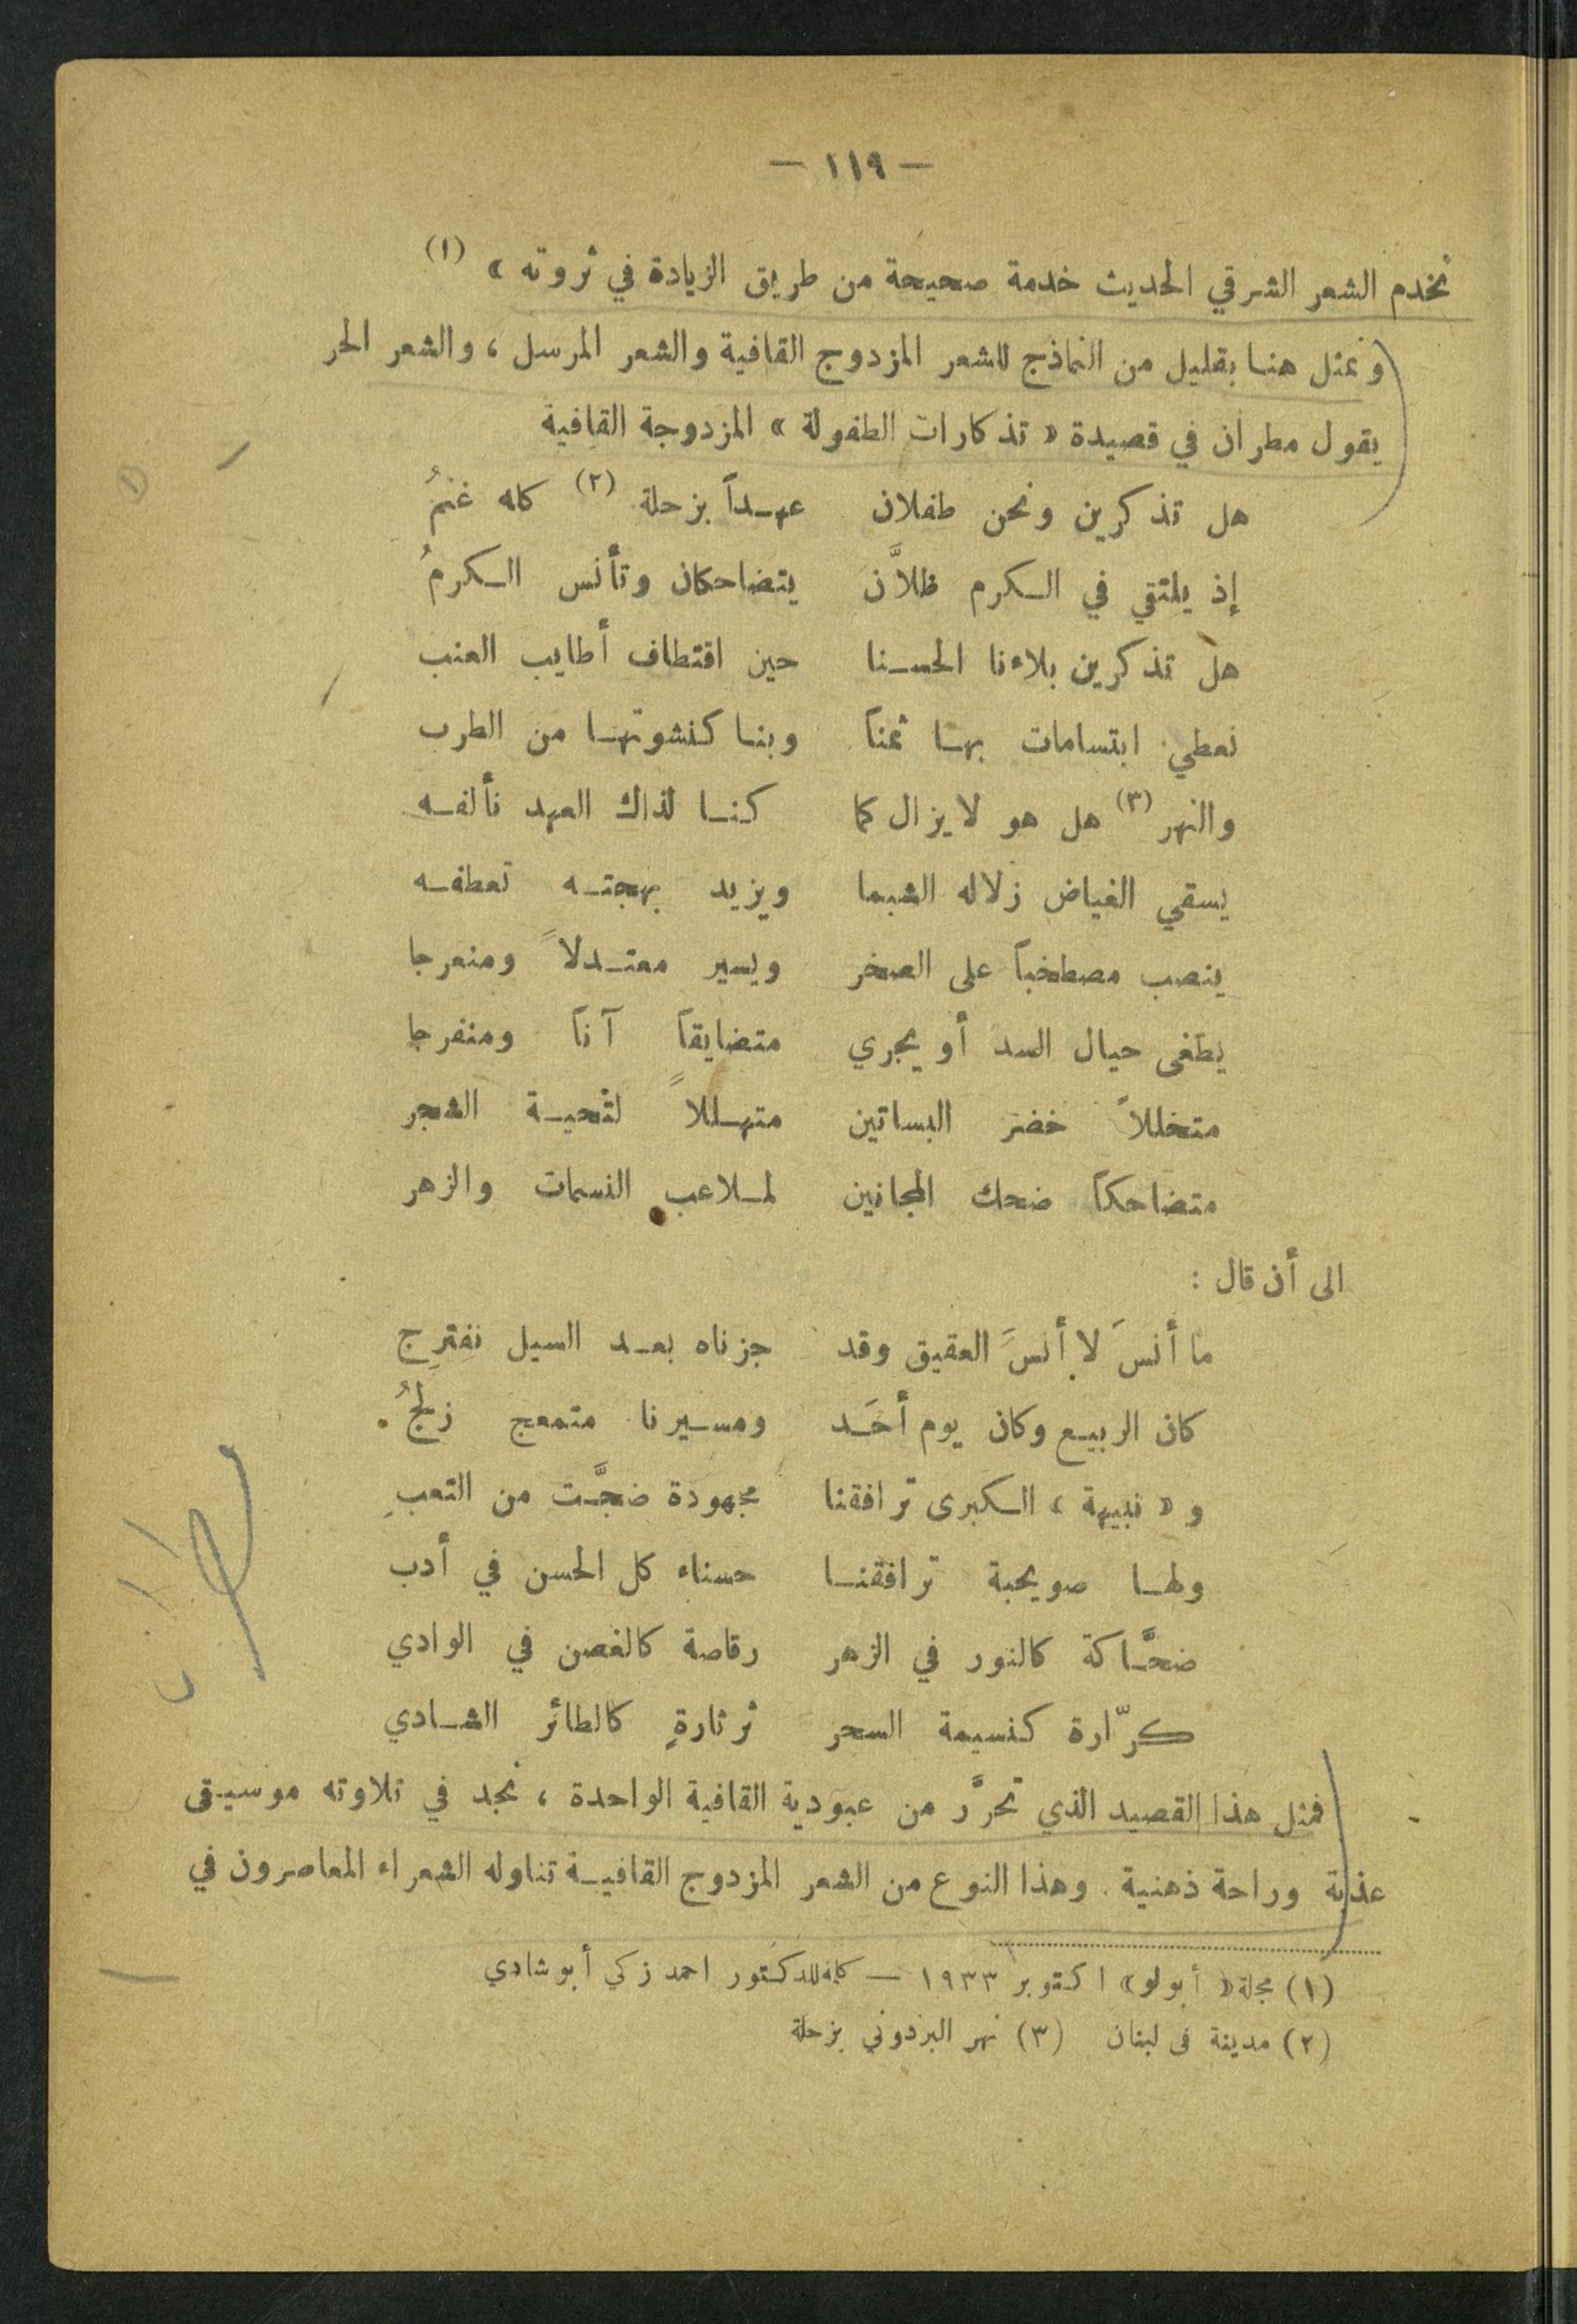 — ١١٩ —
نخدم الشعر الشرقي الحديث خدمة صحيحة من طريق الزيادة في ثروته » (١)
ونمثل هنا بقليل من النماذج للشعر المزدوج القافية والشعر المرسل ، والشعر الحر
يقول مطران في قصيدة « تذكارات الطفولة » المزدوجة القافية
هل تذكرين ونحن طفلان عهداً بزحلة (٢) كله غنمُ
إذ يلتقي في الكرم ظلاَّن يتضاحكان وتأنس الكرمُ
هل تذكرين بلاءنا الحسنا حين اقتطاف أطايب العنب
نعطي ابتسامات بها ثمناً وبنا كنشوتها من الطرب
والنهر (٣) هل هو لا يزال كما كنا لذاك العهد نألفه
يسقي الغياض زلاله الشبما ويزيد بهجته تعطفه
ينصب مصطخباً على الصخر ويسير معتدلاً ومنعرجا
يطغى حيال السد أو يجري متضايقاً آناً ومنفرجا
متخللاً خضر البساتين متهللاً لتحية الشجر
متضاحكاً ضحك المجانين لملاعب النسمات والزهر
الى أن قال :
ما أنسَ لا أنسَ العقيق وقد جزناه بعد السيل نفترِج
كان الربيع وكان يوم أحَد ومسيرنا متمعج زلجُ
و « نبيهة » الكبرى ترافقنا مجهودة ضجَّت من التعبِ
ولها صويحبة ترافقنا حسناء كل الحسن في أدب
ضحَّاكة كالنور في الزهر رقاصة كالغصن في الوادي
كرّارة كنسيمة السحر ثرثارةٍ كالطائر الشادي
فمثل هذا القصيد الذي تحرَّر من عبودية القافية الواحدة ، نجد في تلاوته موسيقى
عذبة وراحة ذهنية . وهذا النوع من الشعر المزدوج القافية تناوله الشعراء المعاصرون في
(١) مجلة « أبولو » اكتوبر ١٩٣٣ — كلمة للدكتور احمد زكي أبو شادي
(٢) مدينة فى لبنان (٣) نهر البردوني بزحلة